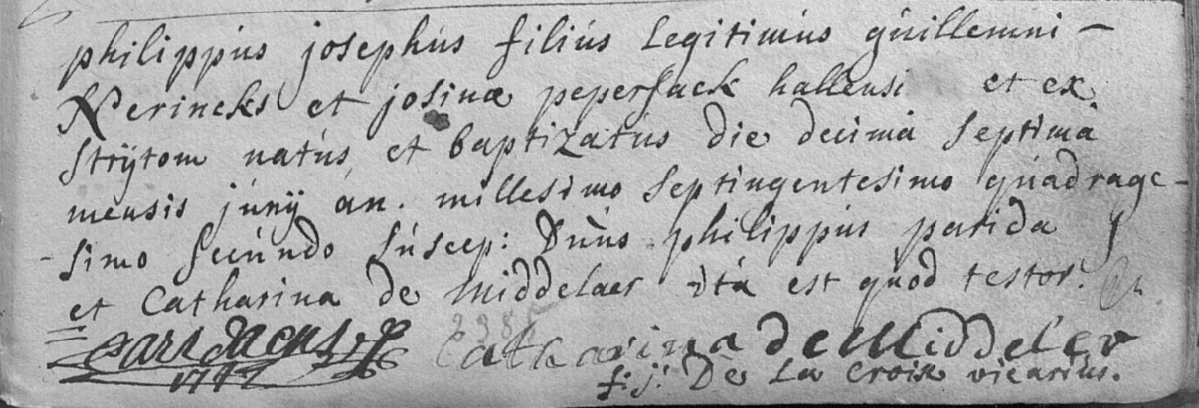 philippus josephus filius legitimus guillemini -
Nerincks et josinæ pepersack hallensi et ex
strijtom natus et baptizatus die decimâ septimâ
mensis junij an. millesimo septingentesimo quadrage-
-simo secundo suscep: Dnus philippus parida
et Catharina de Middelaer ita est quod testor.
2385
Catharina de Middeler
f: j: De La Croix vicarius.